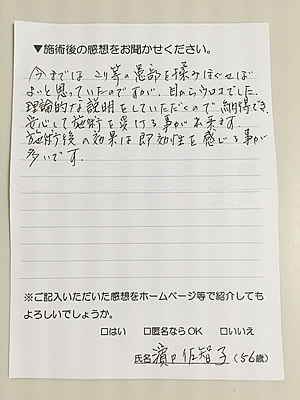 ▼施術後の感想をお聞かせください。
今までは こり等の患部を揉みほぐせば
よいと思っていたのですが、目からウロコでした。
理論的な説明をしていただくので納得でき、
安心して施術を受ける事が出来ます。
施術後の効果は即効性を感じる事が
多いです。
※ご記入いただいた感想をホームページ等で紹介しても
よろしいでしょうか。
□はい □匿名ならOK □いいえ
氏名 濱口 佐智子 (56歳)